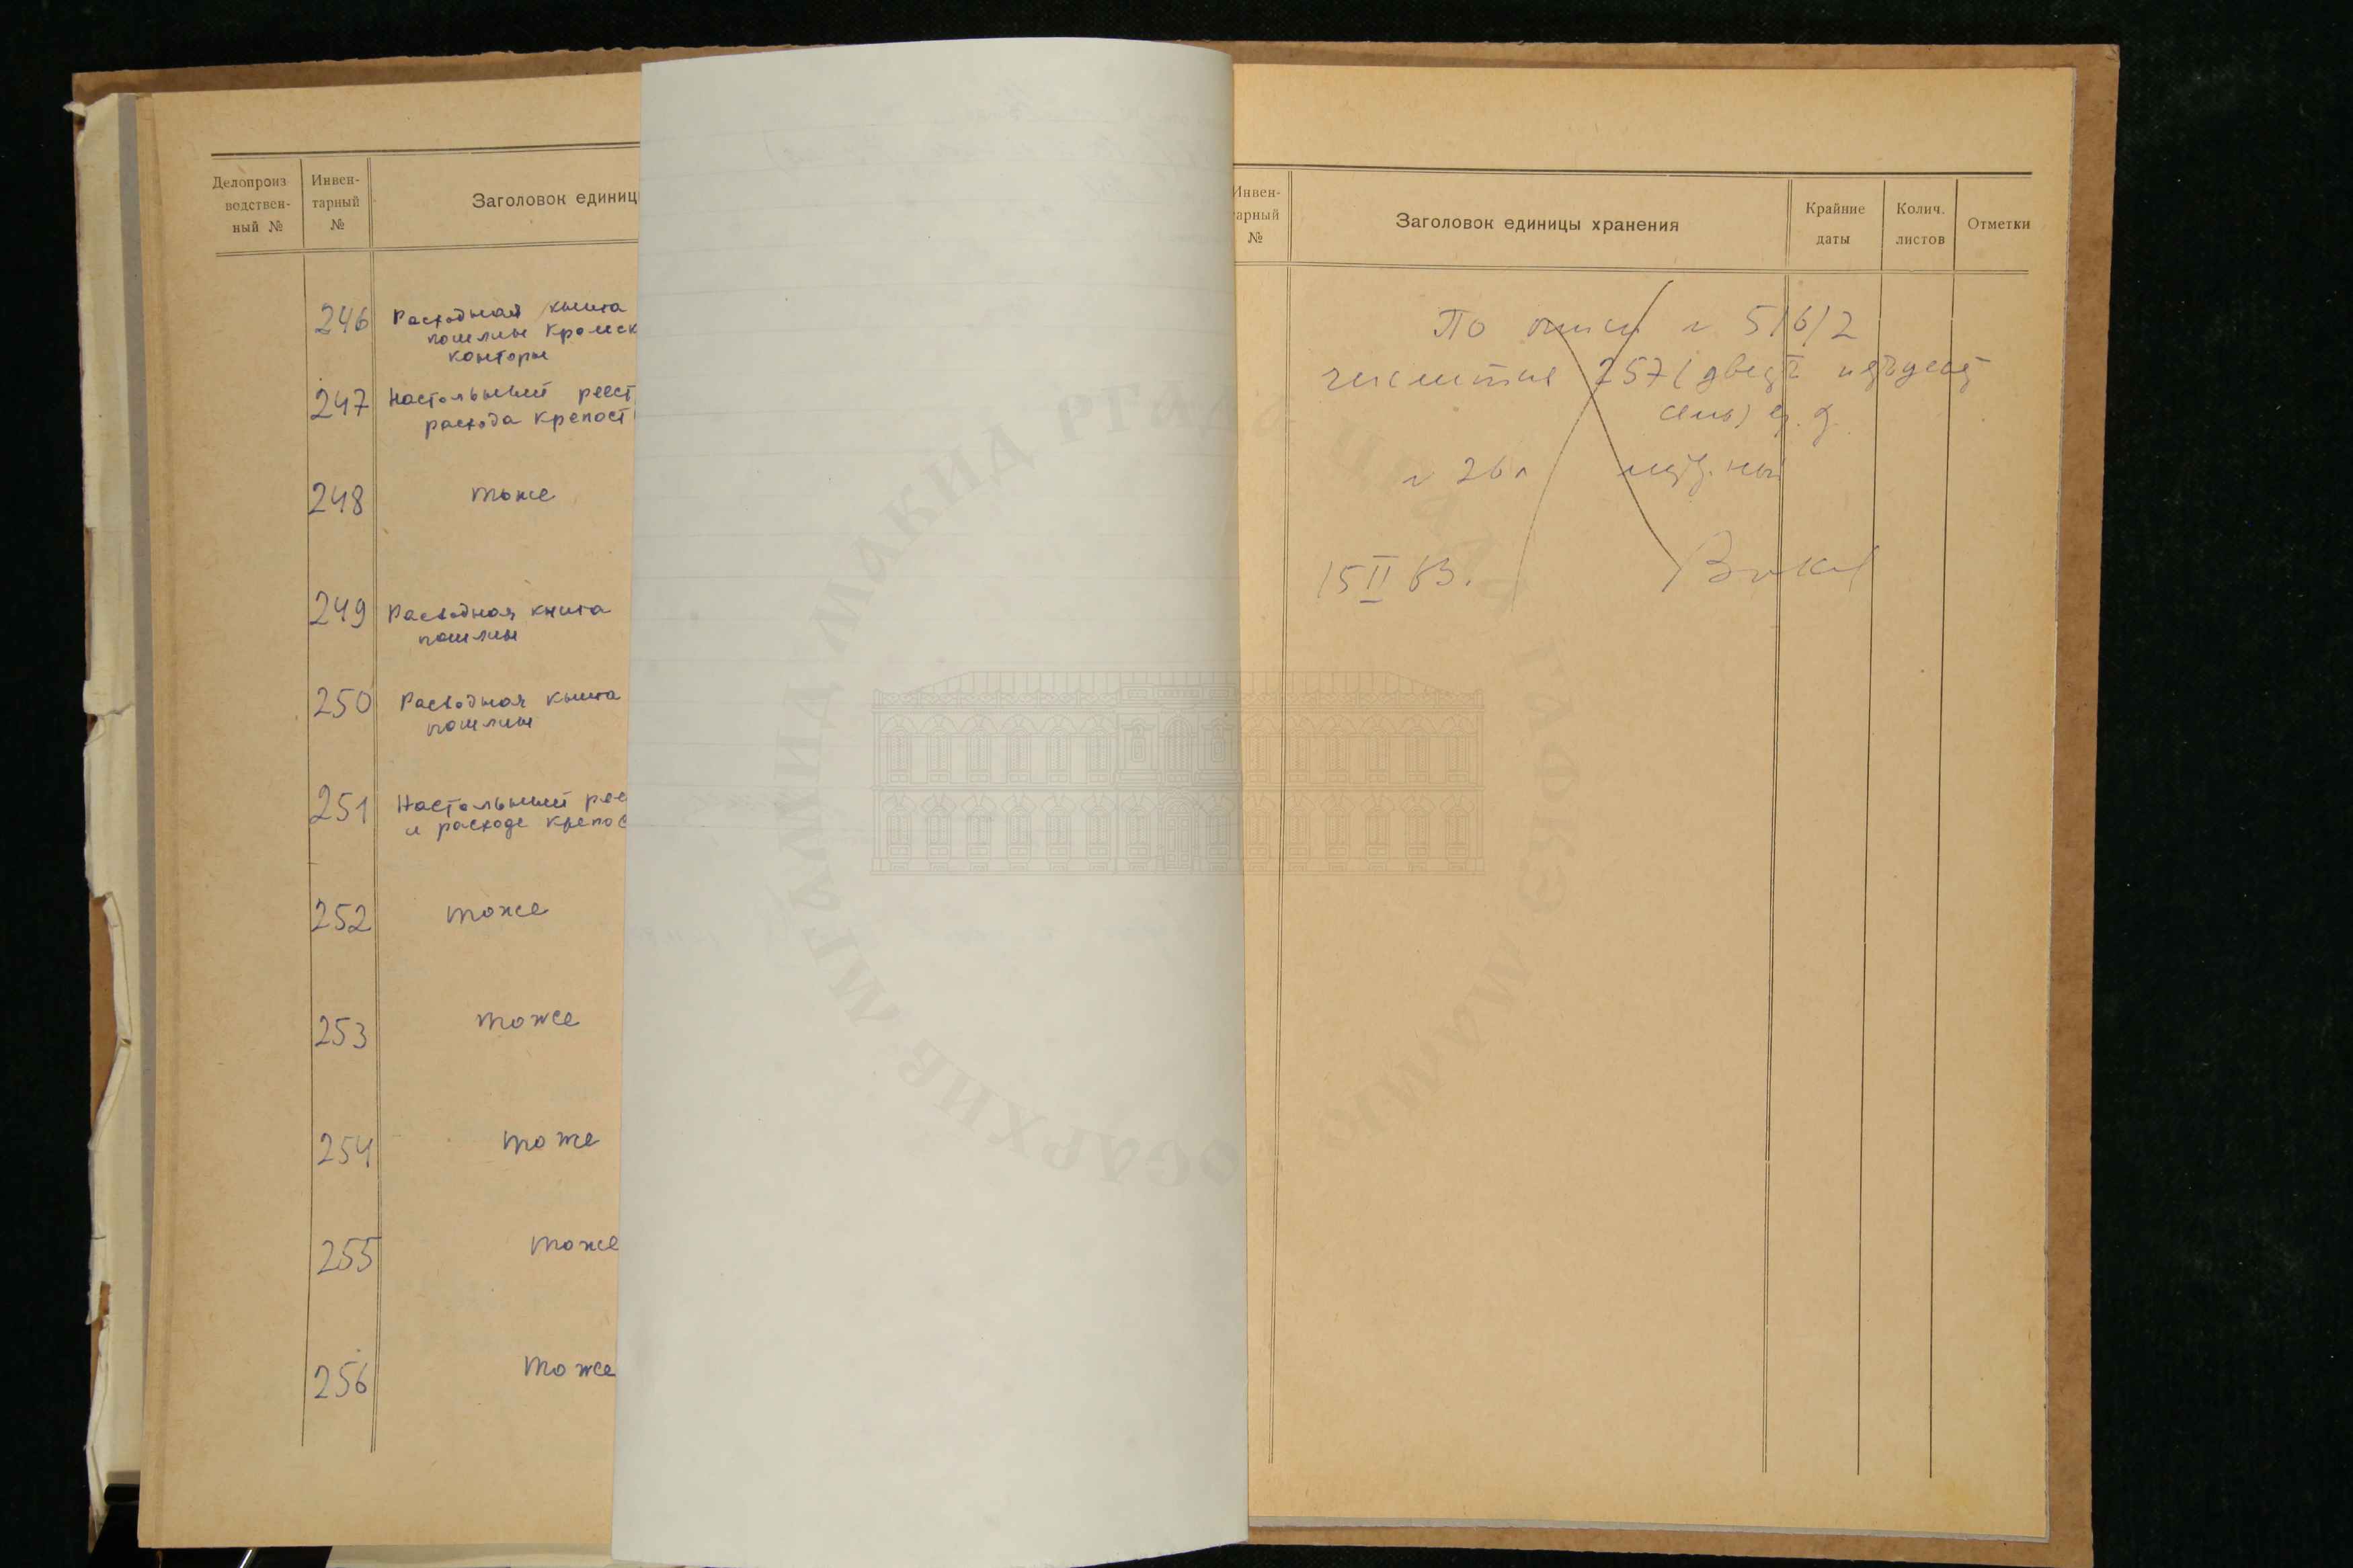 Делопроиз
водствен-
ный №
Инвен-
тарный
№
Заголовок единиц
246 Расходная книга
пошлин Кромск
конторы
247 Настольный реест
расхода крепост
248 тоже
249 Расходная книга
пошлин
250 Расходная книга
пошлин
251 Настольный рее
и расходе крепос
252 тоже
253 тоже
254 тоже
255 тоже
256 тоже
Инвен-
арный
№
Заголовок единицы хранения
Крайние
даты
Колич.
листов
Отметки
По описи 516/2
числится 257 (двести пятьдесят
семь) ед. х.
26
15 II 63.